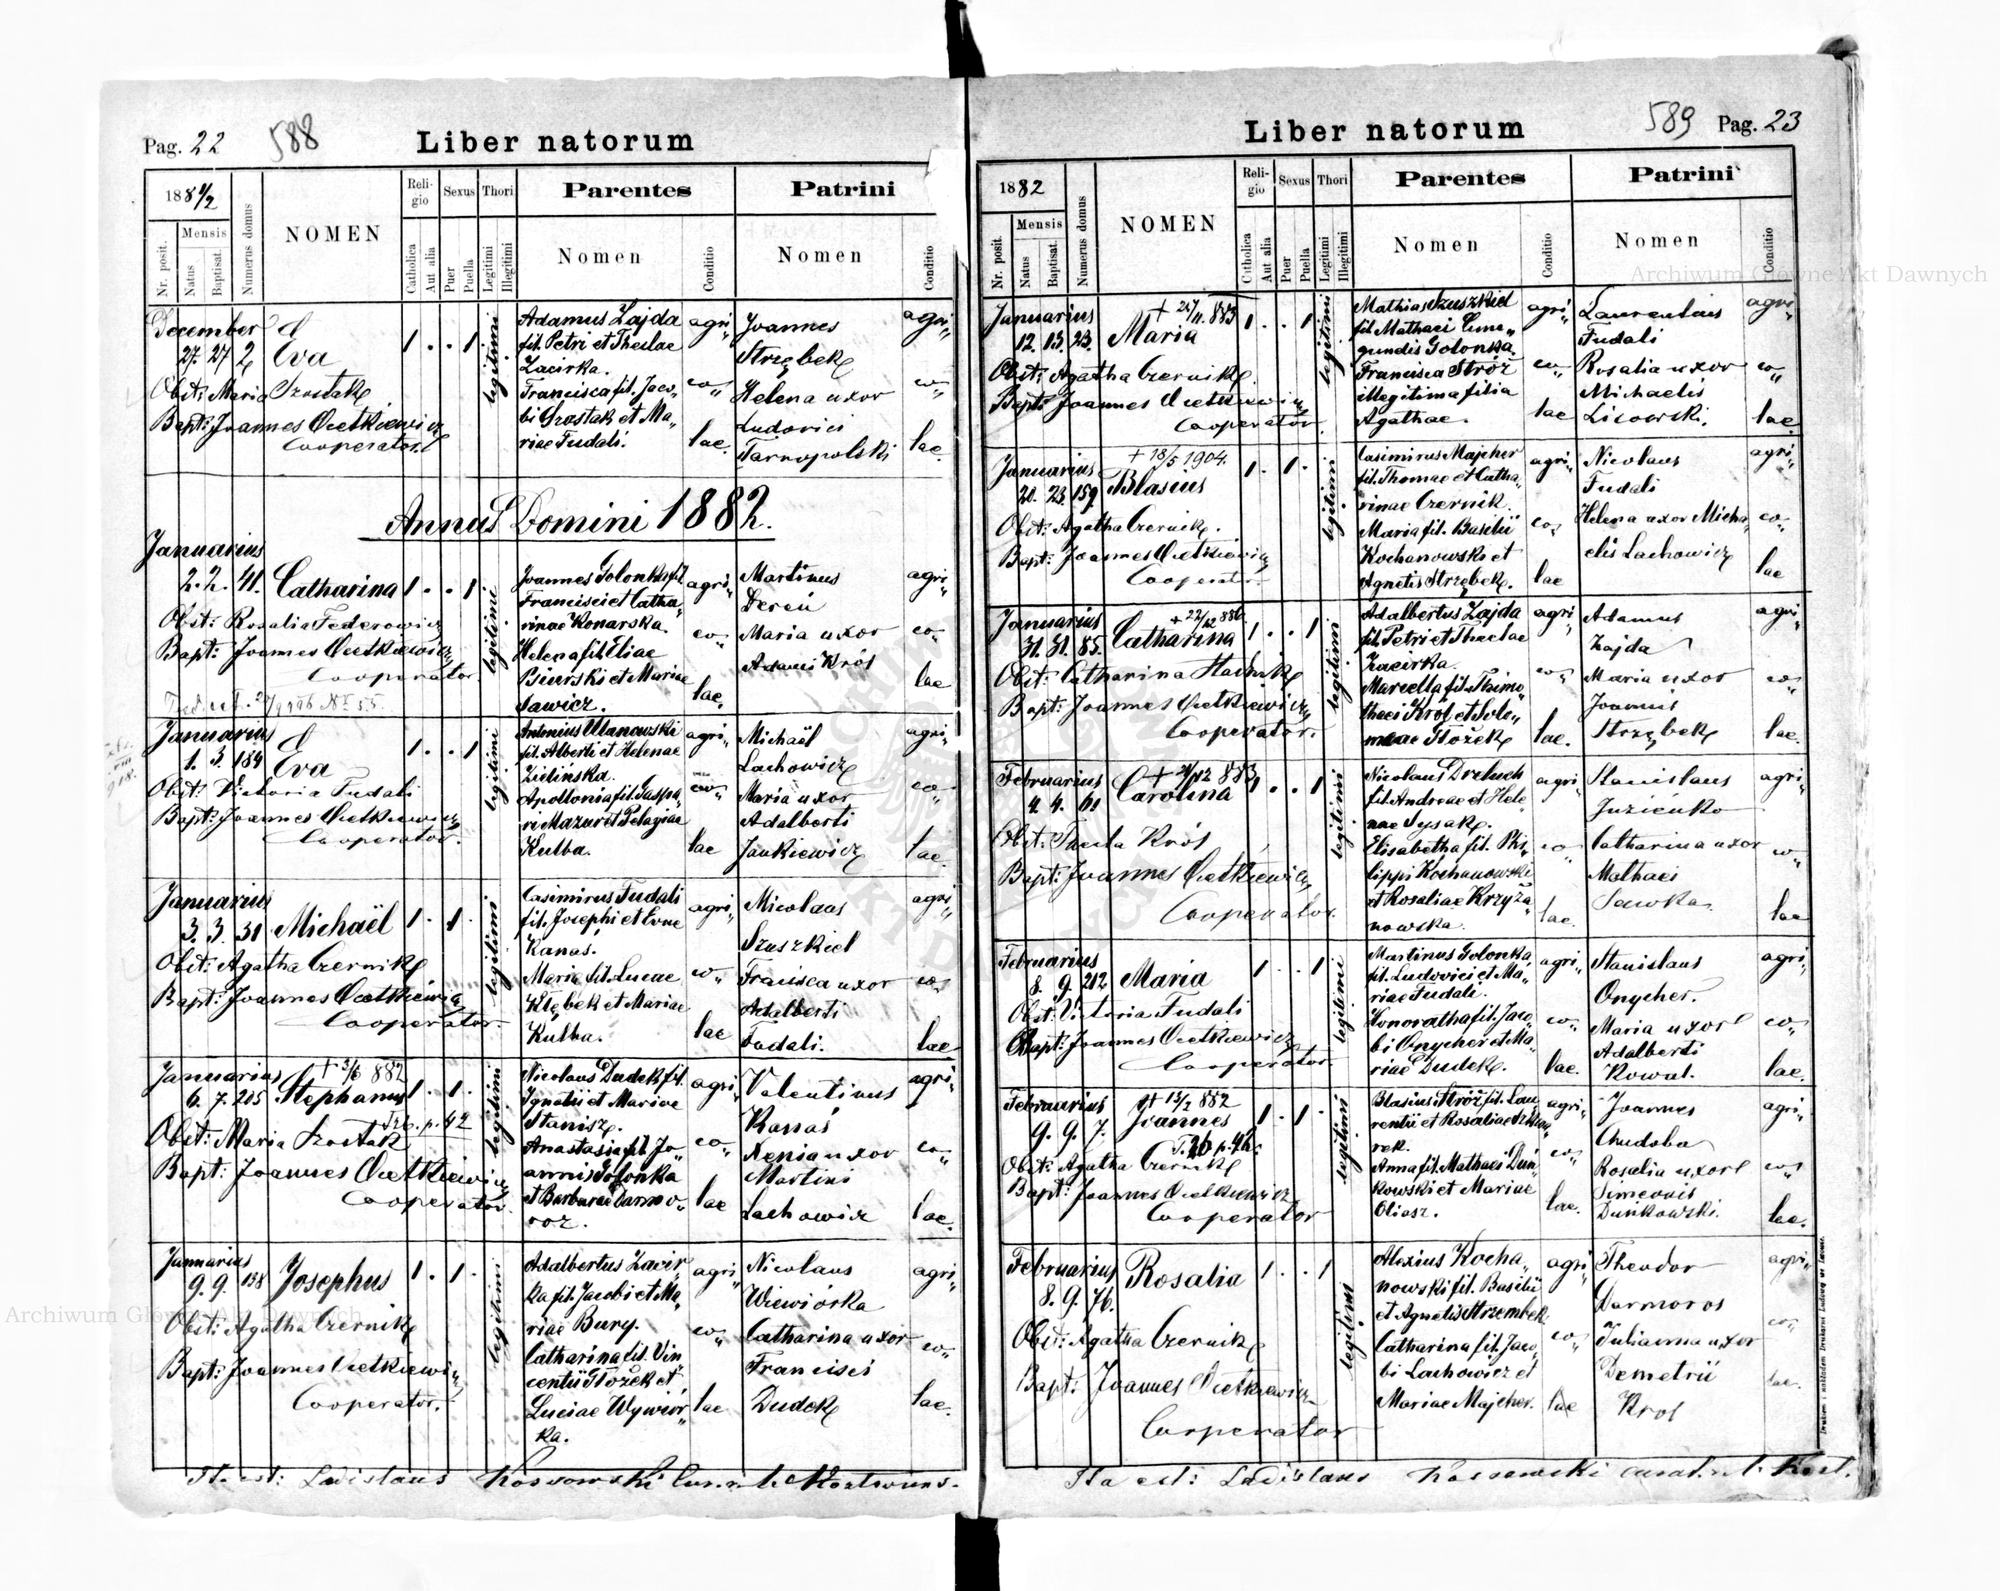 Pag. 22
588
Liber natorum
1881/2
Mensis
Nr. posit.
Natus
Baptisat.
Numerus domus
NOMEN
Religio
Catholica
Aut alia
Sexus
Puer
Puella
Thori
Legitimi
Illegitimi
Parentes
Nomen
Conditio
Patrini
Nomen
Conditio
December
27. 27 2 Eva 1 . . 1 legitimi
Obst: Maria Szostak
Bapt: Joannes Cietkiewicz
Cooperator
Adamus Zajda
fil. Petri et Theclae
Zacirka.
Francisca fil. Jaco„
bi Szostak et Ma„
riae Fudali.
agri„
co„
lae.
Joannes
Strzębek
Helena uxor
Ludovici
Tarnopolski
agri„
co„
lae.
Annus Domini 1882.
Januarius
2. 2. 41. Catharina 1 . . 1 legitimi
Obst: Rosalia Federowicz
Bapt: Joannes Cietkiewicz
Cooperator.
Joannes Golonka fil.
Francisci et Catha„
rinae Konarska.
Helena fil. Eliae
Biurski et Mariae
Sawicz.
agri„
co„
lae.
Martinus
Dereń
Maria uxor
Adami Król
agri„
co„
lae
Januarius
1. 3. 184 Eva 1 . . 1 legitimi
Obst: Victoria Fudali
Bapt: Joannes Cietkiewicz
Cooperator.
Antonius Ulanowski
fil. Alberti et Helenae
Zielińska.
Apollonia fil. Gaspa„
ri Mazur et Pelagiae
Kulba.
agri„
co„
lae
Michaël
Lachowicz
Maria uxor
Adalberti
Jankiewicz
agri„
co„
lae.
Januarius
3. 3. 31 Michaël 1 . 1 . legitimi
Obst: Agatha Czernik
Bapt: Joannes Cietkiewicz
Cooperator.
Casimirus Fudali
fil. Josephi et Evae
Kanas.
Maria fil. Lucae
Kłębek et Mariae
Kulba.
agri„
co„
lae
Nicolaus
Szuszkiel
Francisca uxor
Adalberti
Fudali.
agri„
co„
lae
Januarius + 3/6 882
6. 7. 205 Stephanus 1 . 1 . legitimi
p. 42
Obst: Maria Szostak
Bapt: Joannes Cietkiewicz
Cooperator.
Nicolaus Dudek fil.
Ignatii et Mariae
Stanisz.
Anastasia fil. Jo„
annis Golonka
et Barbarae Darmo„
roz.
agri„
co„
lae
Valentinus
Kanas
Xenia uxor
Martini
Lachowicz
agri„
co„
lae.
Januarius
9. 9. 138 Josephus 1 . 1 . legitimi
Obst: Agatha Czernik
Bapt: Joannes Cietkiewicz
Cooperator.
Adalbertus Zacir„
ka fil. Jacobi et Ma„
riae Bury.
Catharina fil. Vin„
centii Stożek et
Luciae Wywiór„
ka.
agri„
co„
lae
Nicolaus
Wiewiórka
Catharina uxor
Francisci
Dudek
agri„
co„
lae.
Ita est: Ladislaus Kossowski
Liber natorum
589
Pag. 23
1882
Mensis
Nr. posit.
Natus
Baptisat.
Numerus domus
NOMEN
Religio
Catholica
Aut alia
Sexus
Puer
Puella
Thori
Legitimi
Illegitimi
Parentes
Nomen
Conditio
Patrini
Nomen
Conditio
Januarius + 27/11. 883
12. 13. 23. Maria 1 . . 1 legitimi
Obst: Agatha Czernik.
Bapt: Joannes Cietkiewicz
Cooperator.
Mathias Szuszkiel
fil. Mathaei Cune„
gundis Golonka.
Francisca Stróż
illegitima filia
Agathae.
agri„
co„
lae
Laurentius
Fudali
Rosalia uxor
Michaelis
Lisowski.
agri„
co„
lae.
Januarius + 18/5 1904.
20. 23 159 Blasius 1 . 1 . legitimi
Obst: Agatha Czernik.
Bapt: Joannes Cietkiewicz
Cooperator
Casimirus Majcher
fil. Thomae et Catha„
rinae Czernik.
Maria fil. Basilii
Kochanowski et
Agnetis Strzębek.
agri„
co„
lae
Nicolaus
Fudali
Helena uxor Micha„
elis Lachowicz
agri„
co„
lae
Januarius + 22/12 886
31. 31. 85. Catharina 1 . . 1 legitimi
Obst: Catharina Stachnik
Bapt: Joannes Cietkiewicz
Cooperator.
Adalbertus Zajda
fil. Petri et Theclae
Zacirka.
Marcella fil. Thimo„
thaei Król et Solo„
meae Stożek
agri„
co„
lae.
Adamus
Zajda
Maria uxor
Joannis
Strzębek
agri„
co„
lae.
Februarius + 21/12 883
4. 4. 61 Carolina 1 . . 1 legitimi
Obst: Thecla Król
Bapt: Joannes Cietkiewicz
Cooperator.
Nicolaus Drzluch
fil. Andreae et Hele„
nae Sysak.
Elisabetha fil. Phi„
lippi Kochanowski
et Rosaliae Krzyża„
nowska.
agri„
co„
lae.
Stanislaus
Juzieńko
Catharina uxor
Mathaei
Sawka.
agri„
co„
lae
Februarius
8. 9. 212 Maria 1 . . 1 legitimi
Obst: Victoria Fudali
Bapt: Joannes Cietkiewicz
Cooperator.
Martinus Golonka
fil. Ludovici et Ma„
riae Fudali.
Honoratha fil. Jaco„
bi Onycher et Ma„
riae Dudek.
agri„
co„
lae.
Stanislaus
Onycher.
Maria uxor
Adalberti
Kowal.
agri„
co„
lae.
Februarius + 13/2 882
9. 9. 7. Joannes 1 . 1 . legitimi
T. 26 p. 42.
Obst: Agatha Czernik
Bapt: Joannes Cietkiewicz
Cooperator
Blasius Stróż fil. Lau
rentii et Rosaliae
rek.
Anna fil. Mathaei Dun„
kowski et Mariae
Oliasz.
agri„
co„
lae.
Joannes
Chudoba
Rosalia uxor
Simeonis
Dunkowski.
agri„
co„
lae.
Februarius
8. 9. 76. Rosalia 1 . . 1 legitimi
Obst: Agatha Czernik
Bapt: Joannes Cietkiewicz
Cooperator
Alexius Kocha„
nowski fil. Basilii
et Agnetis Strzembek
Catharina fil. Jaco„
bi Lachowicz et
Mariae Majcher.
agri„
co„
lae
Theodor
Darmoros
Julianna uxor
Demetrii
Krol
agri„
co„
lae.
Ita est: Ladislaus Kossowski
Archiwum Główne Akt Dawnych
Archiwum Główne Akt Dawnych